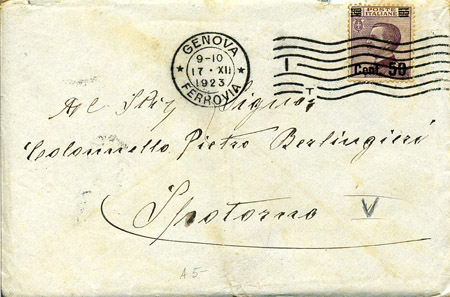 GENOVA
9-10
17·XII
1923
FERROVIA
POSTE
ITALIANE
Cent. 50
I
T
Al Sig. Signor
Colonnello Pietro Berlingieri
Spotorno V
A5-